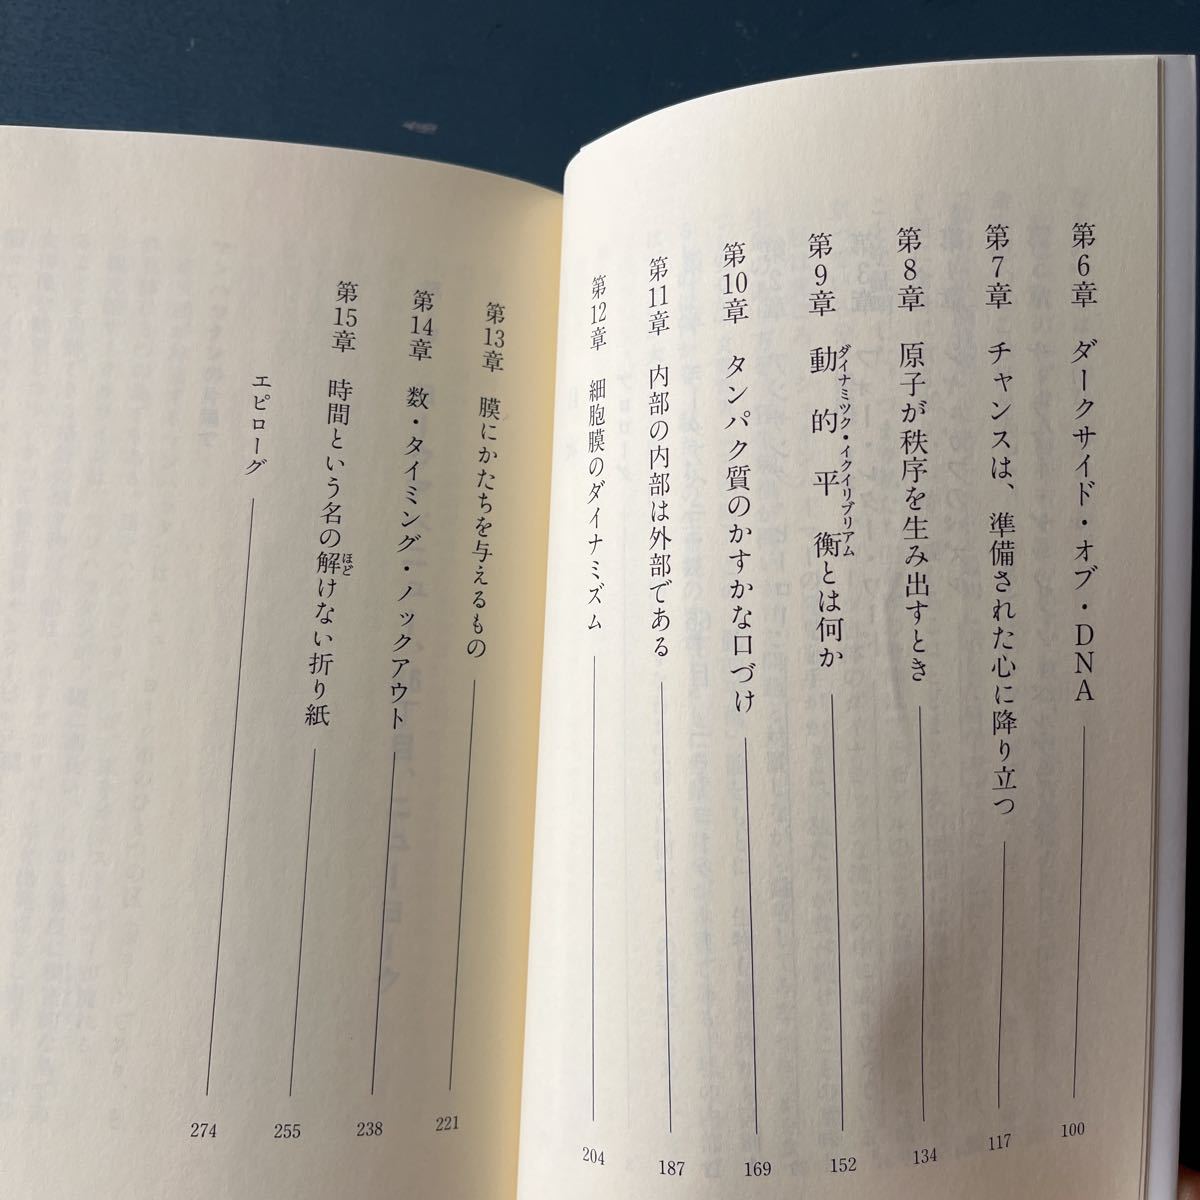 第6章 ダークサイド・オブ・DNA 100
第7章 チャンスは、準備された心に降り立つ 117
第8章 原子が秩序を生み出すとき 134
第9章 動的平衡とは何か 152
ダイナミック・イクイリブリアム
第10章 タンパク質のかすかな口づけ 169
第11章 内部の内部は外部である 187
第12章 細胞膜のダイナミズム 204
第13章 膜にかたちを与えるもの 221
第14章 数・タイミング・ノックアウト 238
第15章 時間という名の解けない折り紙 255
ほど
エピローグ 274